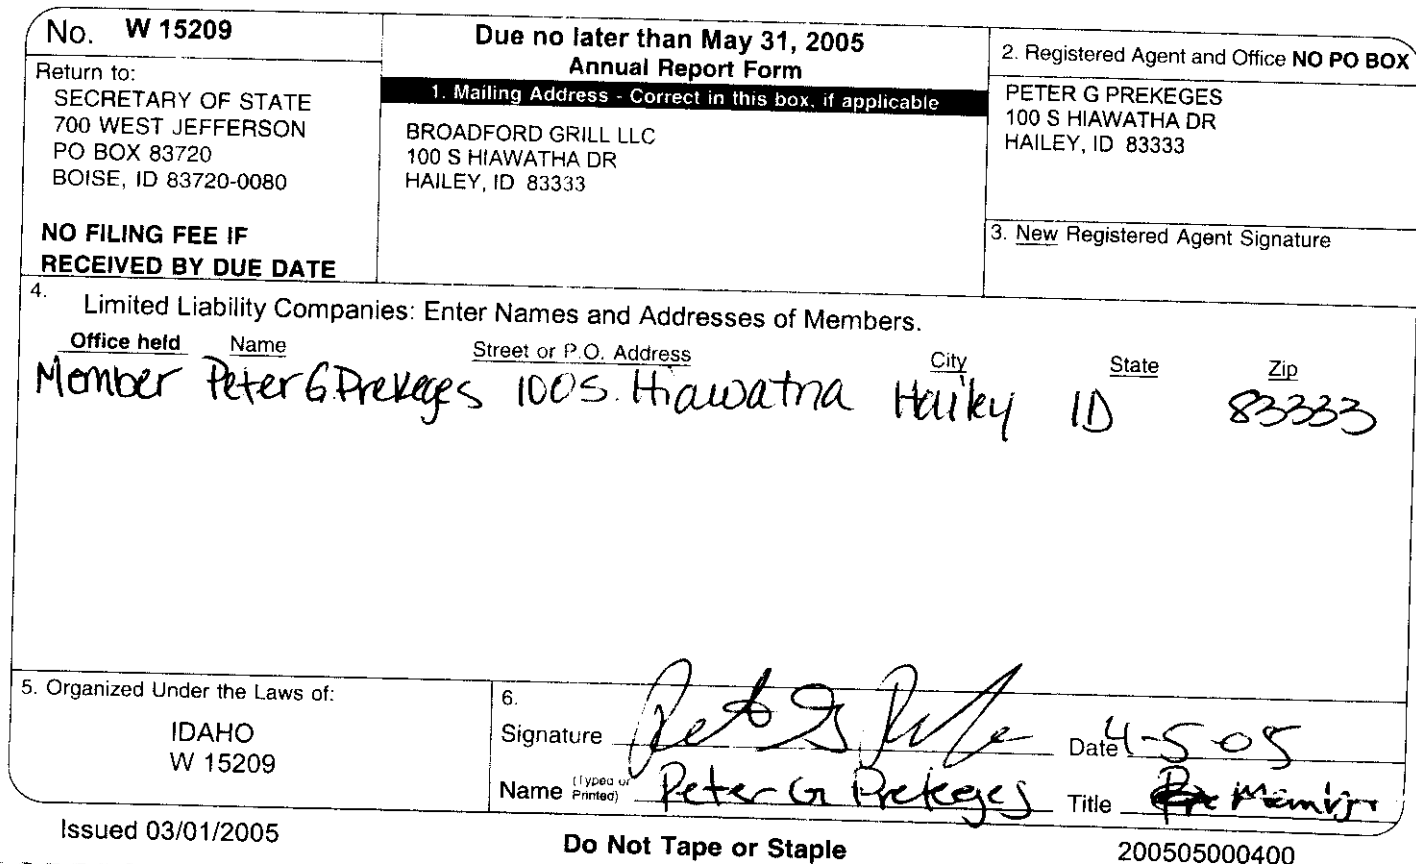 No. W 15209
Return to:
SECRETARY OF STATE
700 WEST JEFFERSON
PO BOX 83720
BOISE, ID 83720-0080
NO FILING FEE IF
RECEIVED BY DUE DATE
Due no later than May 31, 2005
Annual Report Form
1. Mailing Address - Correct in this box, if applicable
BROADFORD GRILL LLC
100 S HIAWATHA DR
HAILEY, ID 83333
2. Registered Agent and Office NO PO BOX
PETER G PREKEGES
100 S HIAWATHA DR
HAILEY, ID 83333
3. New Registered Agent Signature
4.
Limited Liability Companies: Enter Names and Addresses of Members.
Office held Name Street or P.O. Address City State Zip
Member Peter G. Prekeges 100 S. Hiawatha Hailey ID 83333
5. Organized Under the Laws of:
IDAHO
W 15209
6.
Signature Date 4-5-05
Name (Typed or Printed) Peter G Prekeges Title Member
Issued 03/01/2005
Do Not Tape or Staple
200505000400